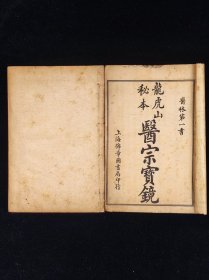 醫林第一書
龍虎山
秘本
醫宗寶鏡
上海錦章圖書局印行